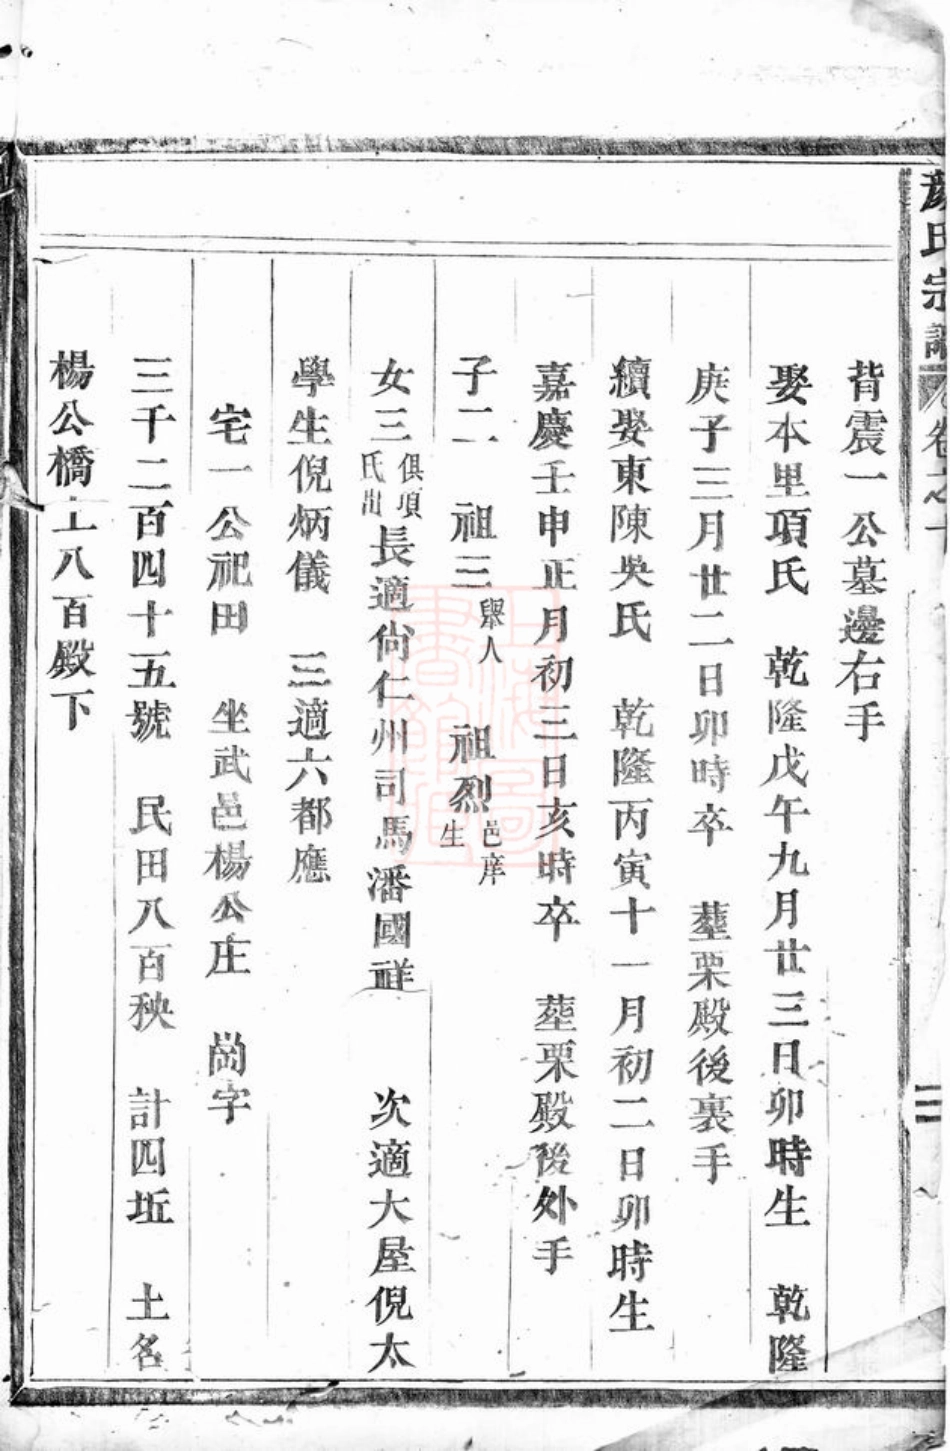 顏氏宗譜 卷之十 二
背震一公墓邊右手
娶本里項氏 乾隆戊午九月廿三日卯時生 乾隆
庚子三月廿二日卯時卒 塟栗殿後裏手
續娶東陳吳氏 乾隆丙寅十一月初二日卯時生
嘉慶壬申正月初三日亥時卒 塟栗殿後外手
子二 祖三舉人 祖烈邑庠生
女三俱項氏出長適尙仁州司馬潘國祥 次適大屋倪太
學生倪炳儀 三適六都應
宅一公祀田 坐武邑楊公庄 崗字
三千二百四十五號 民田八百秧 計四坵 土名
楊公橋上八百殿下
上海圖書館藏